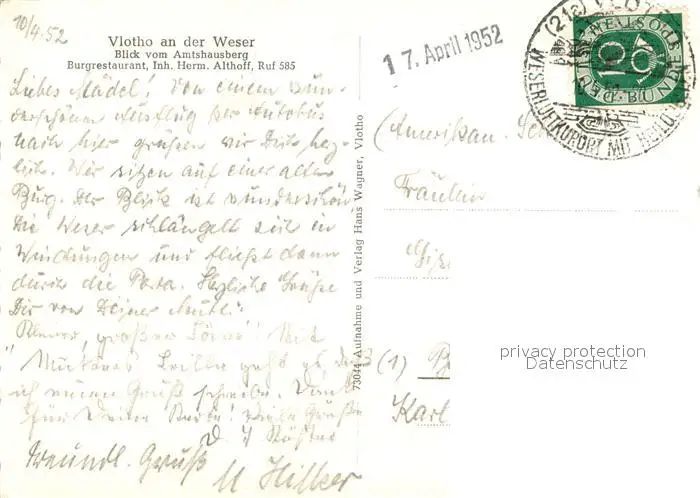 10/4. 52
Vlotho an der Weser
Blick vom Amtshausberg
Burgrestaurant, Inh. Herm. Althoff, Ruf 585
Liebes Mädel! Von einem wun-
derschönen Ausflug per Autobus
nach hier grüßen wir Dich herz-
lich. Wir sitzen auf einer alten
Burg. Der Blick ist wunderschön
die Weser schlängelt sich in
Windungen und fließt dann
durch die Porta. Herzliche Grüße
Dir von Deiner Mutti.
großer
Mit
Mutters Brille geht es, daß
ich einen Gruß schreibe. Dank
für Deine Karte! Viele Grüße
Freundl. Gruß
73044 Aufnahme und Verlag Hans Wagner, Vlotho
17. April 1952
(21a) VLOTHO
WESERLUFTKURORT MIT HEILQUELLEN
DEUTSCHE BUNDESPOST
10
(Amerikan.
Fräulein
(1)
Karl
privacy protection
Datenschutz